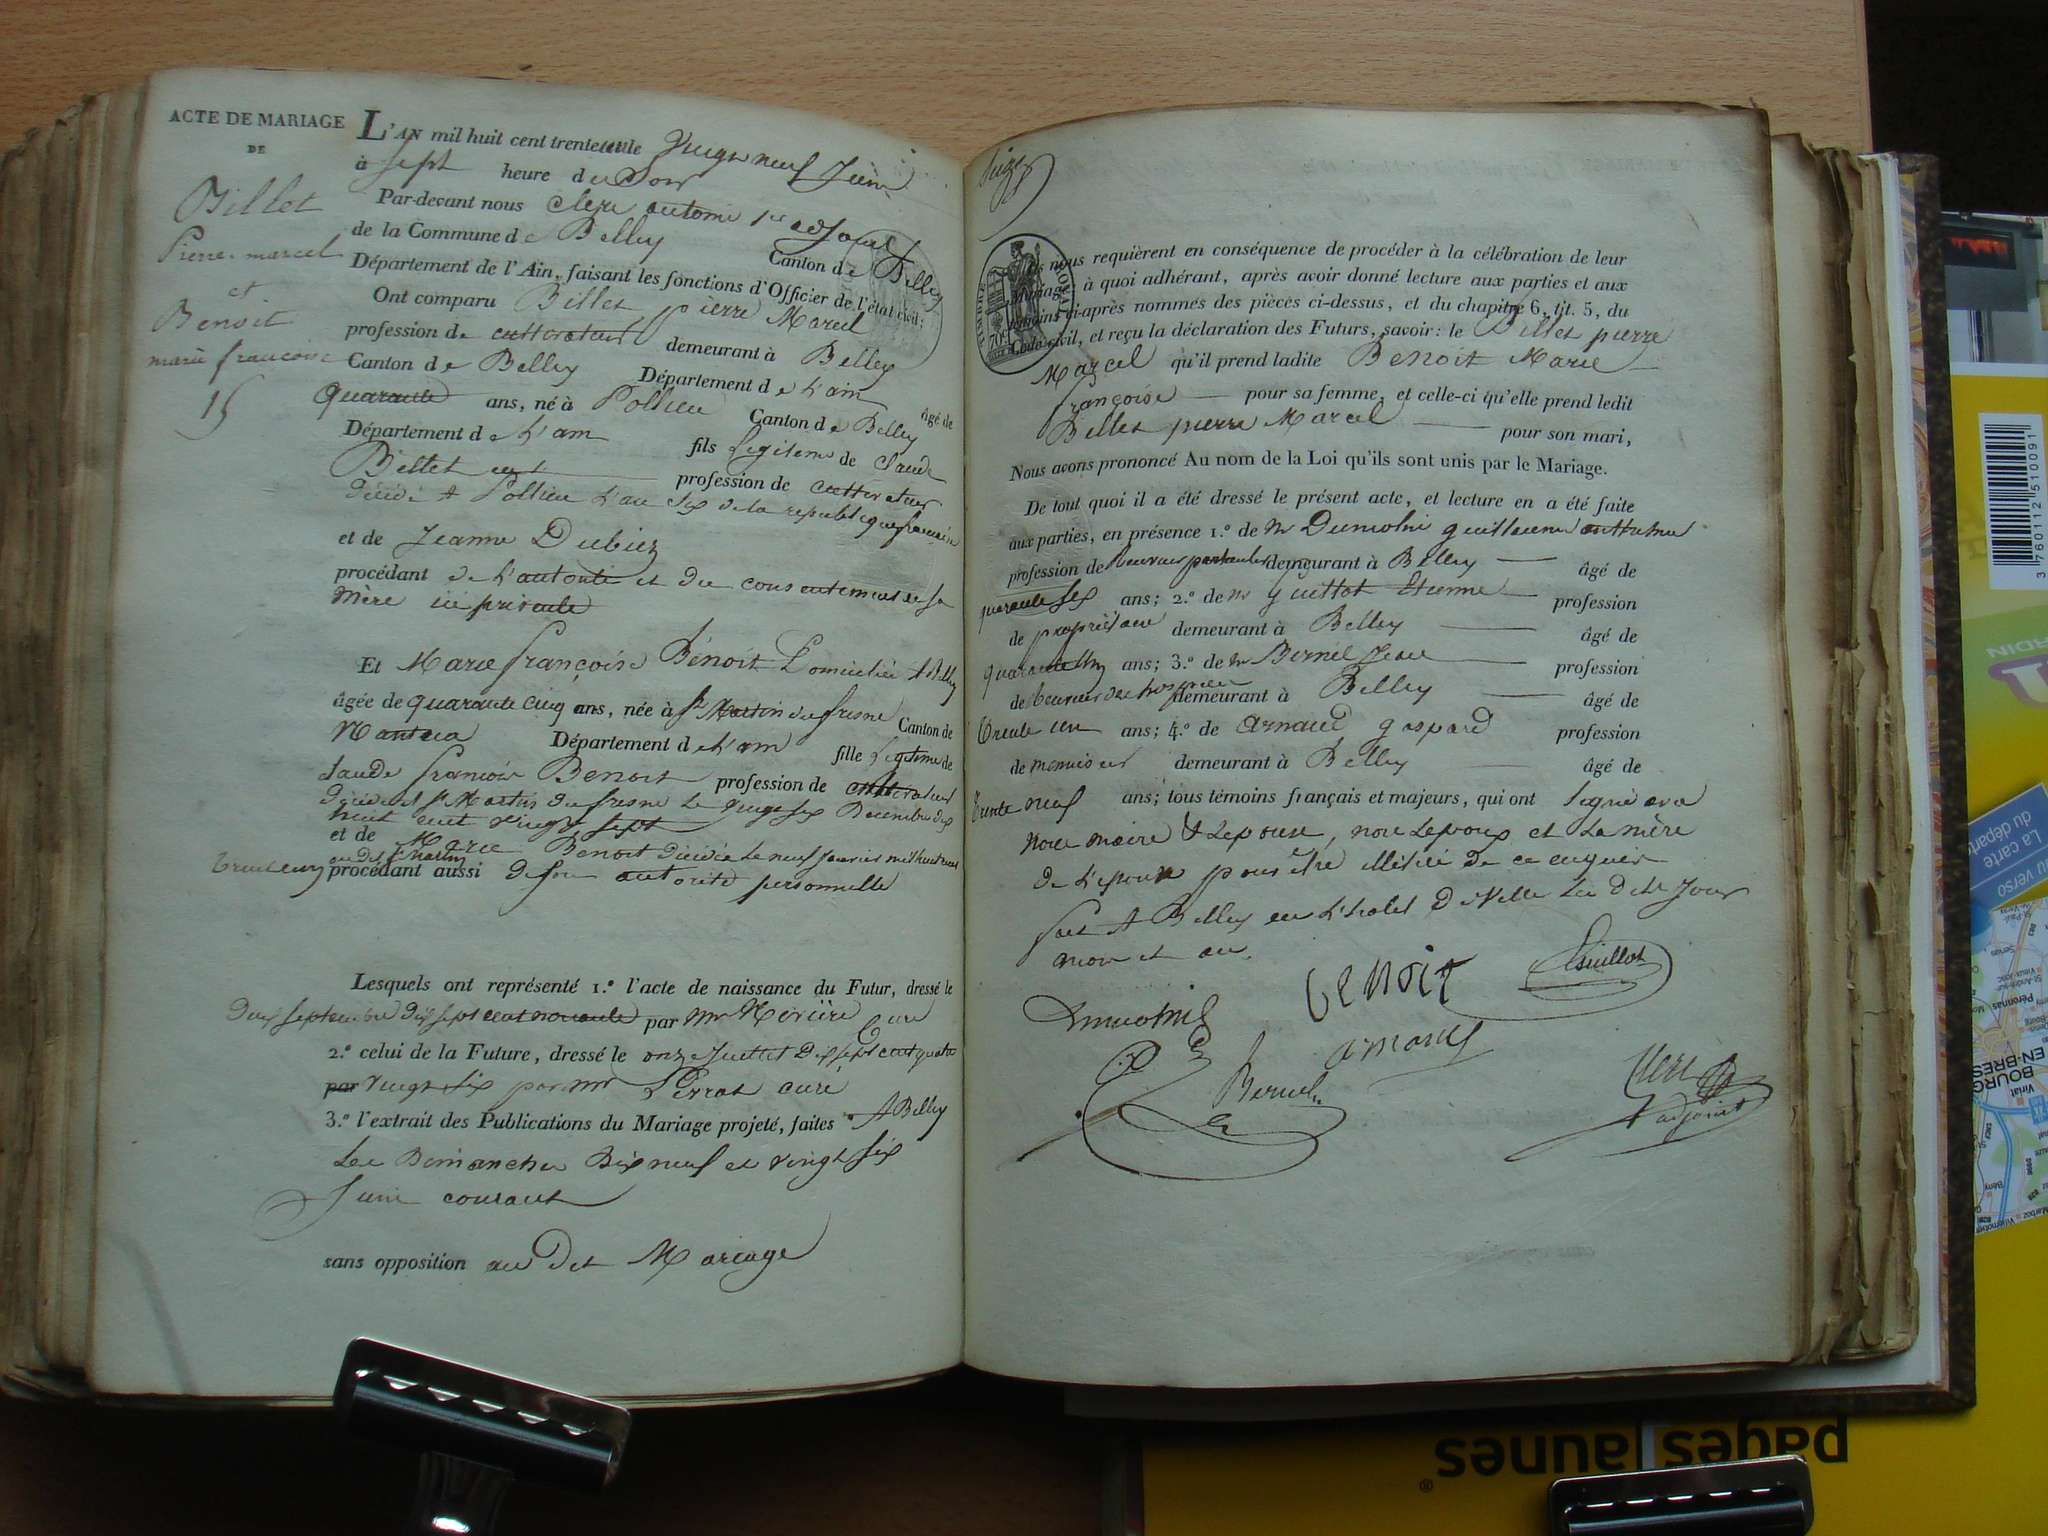 ACTE DE MARIAGE
DE
Billet
Pierre-marcel
et
Benoit
marie françoise
15
L'AN mil huit cent trente vingt neuf Juin
à Sept heure du Soir
Par-devant nous Clerc antoine 1er adjoint
de la Commune de Belley Canton de Belley
Département de l'Ain, faisant les fonctions d'Officier de l'état civil;
Ont comparu Billet pierre Marcel
profession de cultivateur demeurant à Belley
Canton de Belley Département de L'ain âgé de
quarante ans, né à Pollieu Canton de Belley
Département de L'ain fils Legitime de Claude
Billet profession de cultivateur
décédé A Pollieu L'an Six de la republique francaise
et de Jeanne Dubiez
procédant de L'autorité et du consentement de sa
Mère ici presente
Et Marie françoise Benoit Domiciliée A Belley
âgée de quarante cinq ans, née à St Martin du fresne Canton de
Nantua Département de L'ain fille Legitime de
Claude françois Benoit profession de cultivateur
décédé A St Martin du fresne Le vingt six Decembre dix
huit cent vingt sept
et de Marie Benoit décédée Le neuf Janvier mil huit cent
trente un au dit St Martin
procédant aussi de son autorité personnelle
Lesquels ont représenté 1.º l'acte de naissance du Futur, dressé le
deux septembre dix sept cent nonante par mr Curé
2.º celui de la Future, dressé le onze Juillet Dix sept cent quatre
par vingt six par mr Perrat curé
3.º l'extrait des Publications du Mariage projeté, faites A Belley
Les Dimanches Dix neuf et vingt Six
Juin courant
sans opposition au Dit Mariage
Seize
TIMBRE ROYAL
70 c
Ils nous requièrent en conséquence de procéder à la célébration de leur
Mariage, à quoi adhérant, après avoir donné lecture aux parties et aux
témoins ci-après nommés des pièces ci-dessus, et du chapitre 6, tit. 5, du
Code civil, et reçu la déclaration des Futurs, savoir: le Billet pierre
Marcel qu'il prend ladite Benoit Marie
françoise pour sa femme, et celle-ci qu'elle prend ledit
Billet pierre Marcel pour son mari,
Nous avons prononcé Au nom de la Loi qu'ils sont unis par le Mariage.
De tout quoi il a été dressé le présent acte, et lecture en a été faite
aux parties, en présence 1.º de Mr Dumolin guillaume
profession de Receveur demeurant à Belley âgé de
quarante six ans; 2.º de Mr Guillot Etienne profession
de propriétaire demeurant à Belley âgé de
quarante ans; 3.º de Mr Bernel Jean profession
de demeurant à Belley âgé de
trente un ans; 4.º de Arnaud gaspard profession
de menuisier demeurant à Belley âgé de
trente neuf ans; tous témoins français et majeurs, qui ont Signé avec
nous maire & L'epouse, non L'epoux et La mère
de L'epoux pour être illétré de ce enquis
fait A Belley en L'hotel De Ville Les dits Jour
mois et an.
benoit
Guillot
Dumolin
arnaud
Bernel
Clerc
adjoint
3 760112 510091
La carte
du départe
au verso
BOURG
EN-BRES
Péronnas
Viriat
pages jaunes